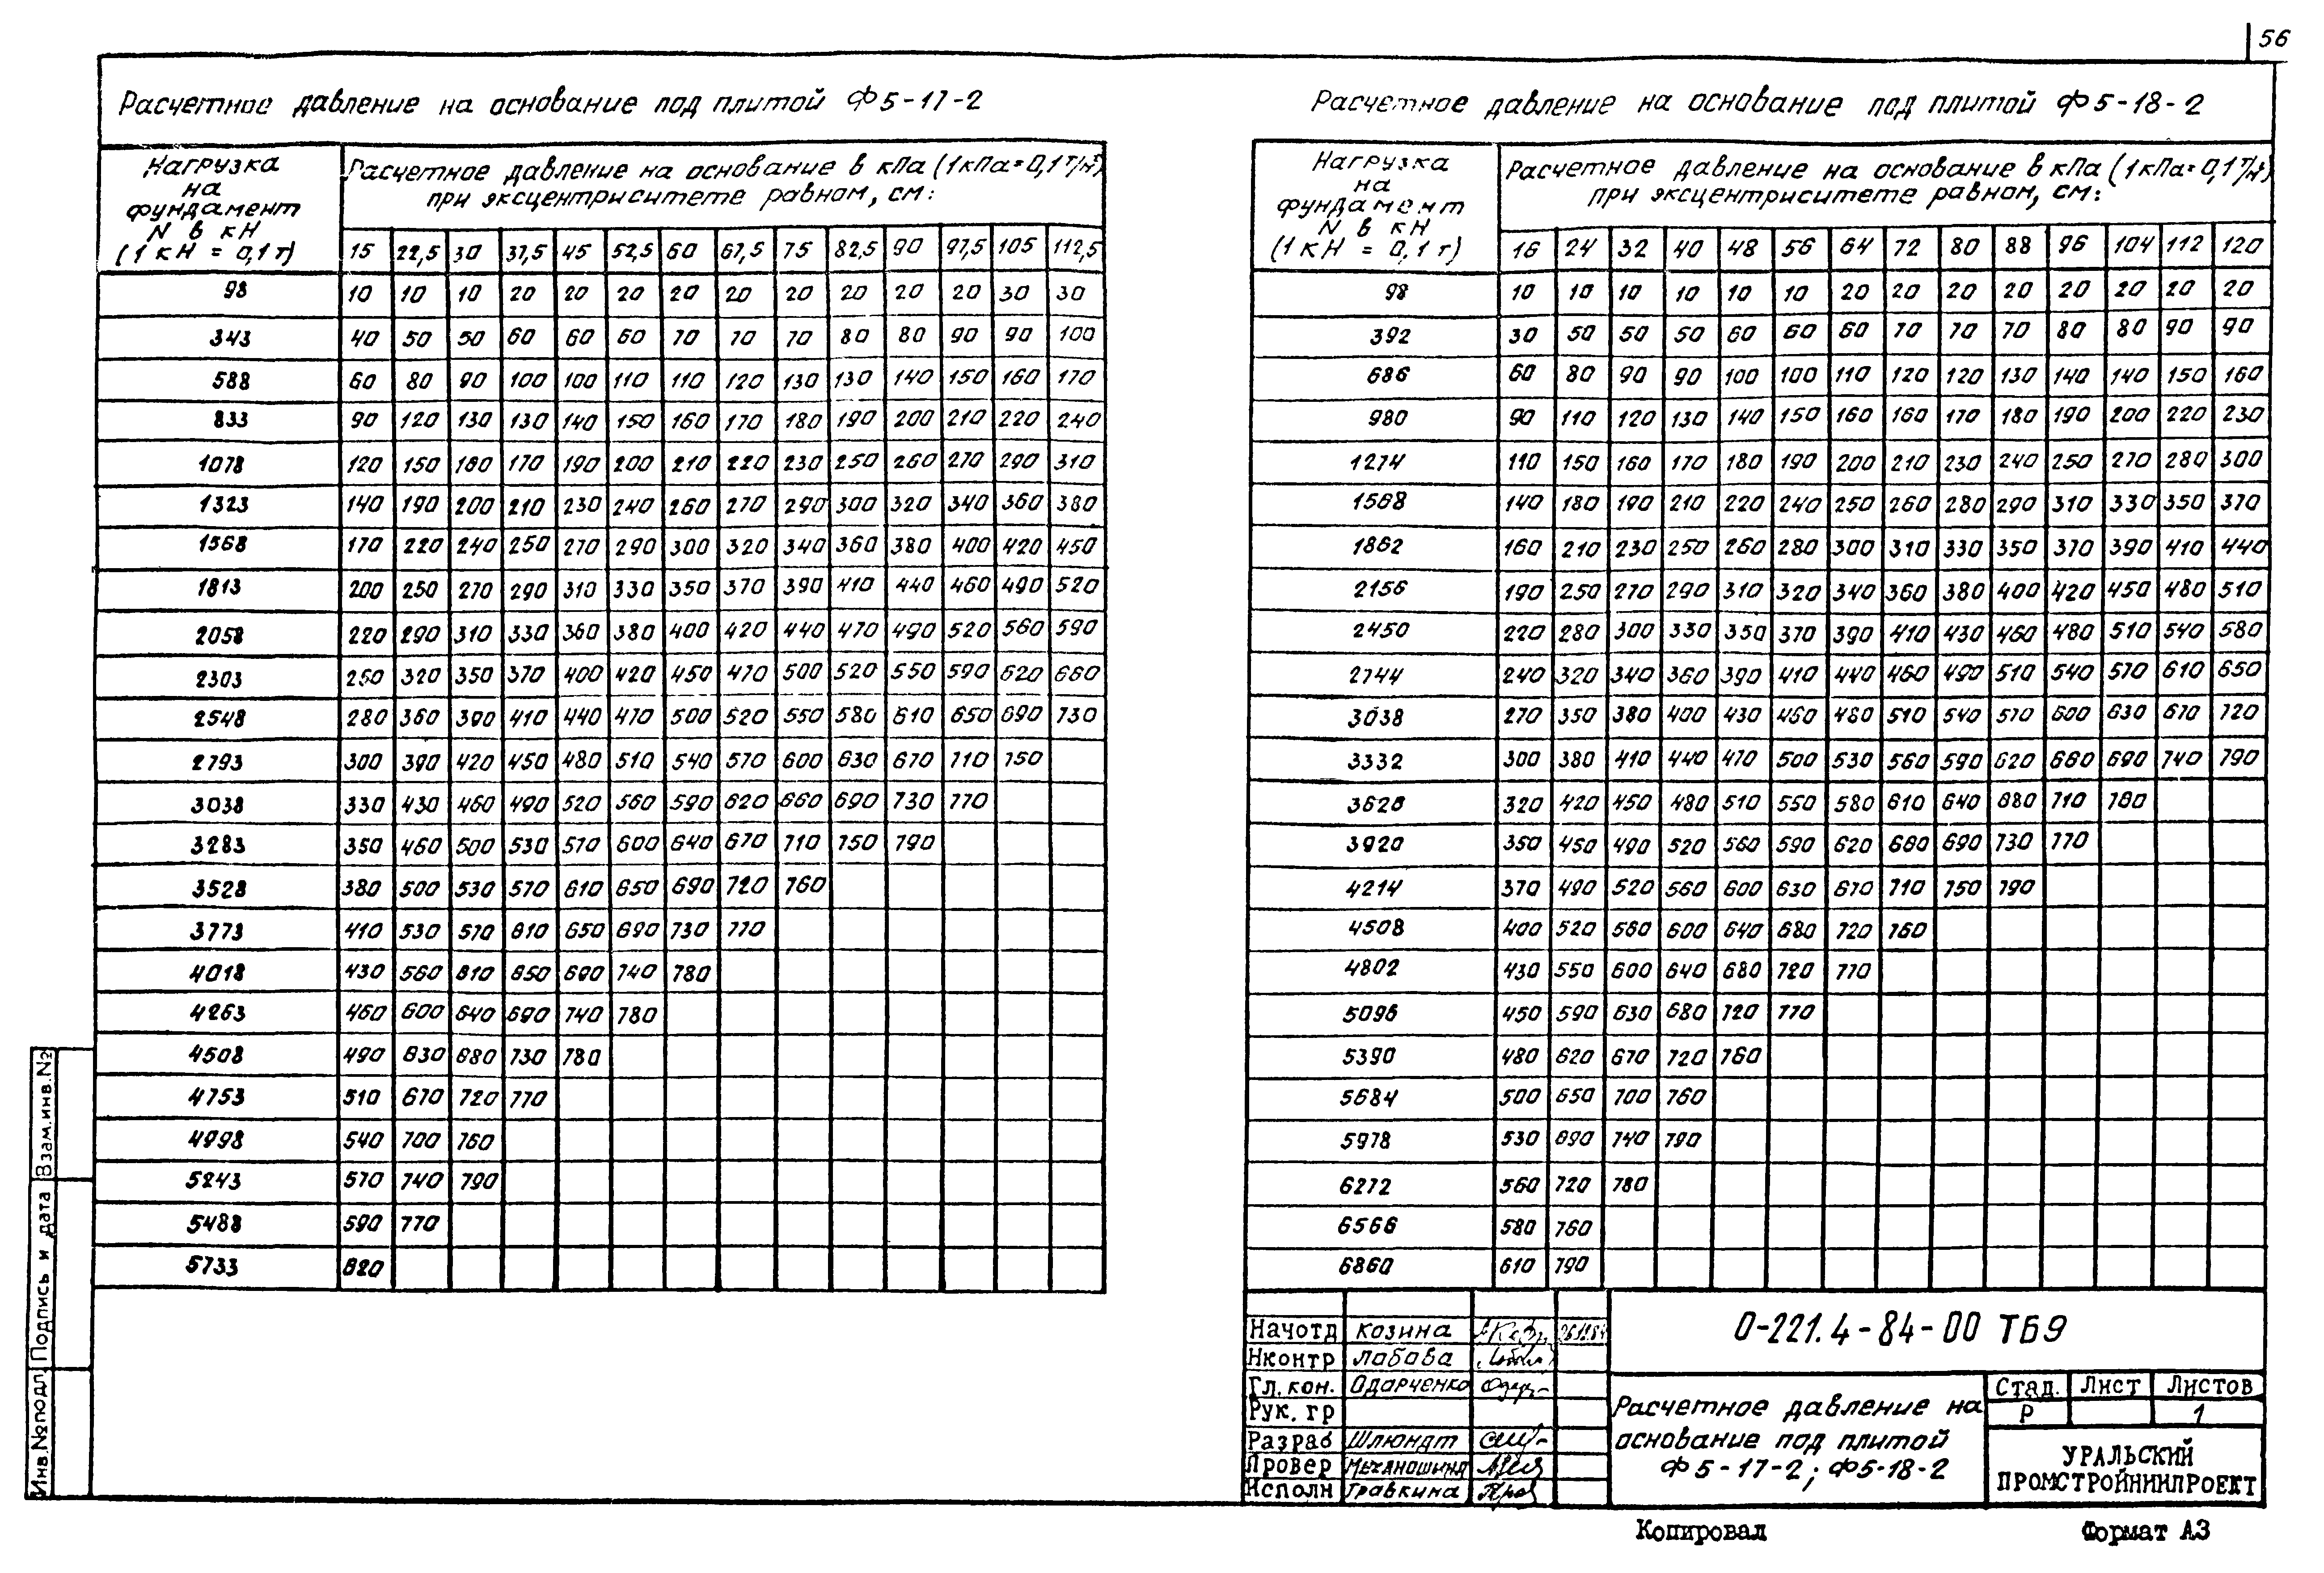 56
Расчетное давление на основание под плитой Ф5-17-2
Нагрузка на фундамент N в кН (1 кН = 0,1 т)
Расчетное давление на основание в кПа (1кПа=0,1т/м²) при эксцентриситете равном, см:
15 22,5 30 37,5 45 52,5 60 67,5 75 82,5 90 97,5 105 112,5
98 10 10 10 20 20 20 20 20 20 20 20 20 30 30
343 40 50 50 60 60 60 70 70 70 80 80 90 90 100
588 60 80 90 100 100 110 110 120 130 130 140 150 160 170
833 90 120 130 130 140 150 160 170 180 190 200 210 220 240
1078 120 150 160 170 190 200 210 220 230 250 260 270 290 310
1323 140 190 200 210 230 240 260 270 290 300 320 340 360 380
1568 170 220 240 250 270 290 300 320 340 360 380 400 420 450
1813 200 250 270 290 310 330 350 370 390 410 440 460 490 520
2058 220 290 310 330 360 380 400 420 440 470 490 520 560 590
2303 250 320 350 370 400 420 450 470 500 520 550 590 620 660
2548 280 360 390 410 440 470 500 520 550 580 610 650 690 730
2793 300 390 420 450 480 510 540 570 600 630 670 710 750
3038 330 430 460 490 520 560 590 620 660 690 730 770
3283 350 460 500 530 570 600 640 670 710 750 790
3528 380 500 530 570 610 650 690 720 760
3773 410 530 570 610 650 690 730 770
4018 430 560 610 650 690 740 780
4263 460 600 640 690 740 780
4508 490 630 680 730 780
4753 510 670 720 770
4998 540 700 760
5243 570 740 790
5488 590 770
5733 620
Расчетное давление на основание под плитой Ф5-18-2
Нагрузка на фундамент N в кН (1 кН = 0,1 т)
Расчетное давление на основание в кПа (1кПа=0,1т/м²) при эксцентриситете равном, см:
16 24 32 40 48 56 64 72 80 88 96 104 112 120
98 10 10 10 10 10 10 20 20 20 20 20 20 20 20
392 30 50 50 50 60 60 60 70 70 70 80 80 90 90
686 60 80 90 90 100 100 110 120 120 130 140 140 150 160
980 90 110 120 130 140 150 160 160 170 180 190 200 220 230
1274 110 150 160 170 180 190 200 210 230 240 250 270 280 300
1568 140 180 190 210 220 240 250 260 280 290 310 330 350 370
1862 160 210 230 250 260 280 300 310 330 350 370 390 410 440
2156 190 250 270 290 310 320 340 360 380 400 420 450 480 510
2450 220 280 300 330 350 370 390 410 430 460 480 510 540 580
2744 240 320 340 360 390 410 440 460 490 510 540 570 610 650
3038 270 350 380 400 430 460 480 510 540 570 600 630 670 720
3332 300 380 410 440 470 500 530 560 590 620 660 690 740 790
3626 320 420 450 480 510 550 580 610 640 680 710 760
3920 350 450 490 520 560 590 620 660 690 730 770
4214 370 490 520 560 600 630 670 710 750 790
4508 400 520 560 600 640 680 720 760
4802 430 550 600 640 680 720 770
5096 450 590 630 680 720 770
5390 480 620 670 720 760
5684 500 650 700 760
5978 530 690 740 790
6272 560 720 780
6566 580 760
6860 610 790
Начотд Козина 26.12.84
Нконтр Лабава
Гл.кон. Одарченко
Рук. гр
Разраб Шлюндт
Провер Механошина
Исполн Травкина
0-221.4-84-00 ТБ9
Расчетное давление на основание под плитой Ф5-17-2; Ф5-18-2
Стад. Лист Листов
Р 1
УРАЛЬСКИЙ
ПРОМСТРОЙНИИПРОЕКТ
Копировал Формат А3
Взам.инв.№
Подпись и дата
Инв.№подл.